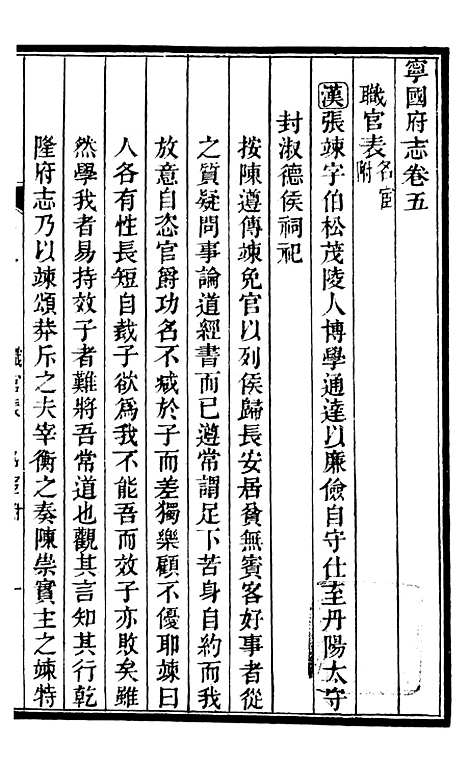 寧國府志卷五
職官表名宦附
漢張竦字伯松茂陵人博學通達以廉儉自守仕至丹陽太守
封淑德侯祠祀
按陳遵傳竦免官以列侯歸長安居貧無賓客好事者從
之質疑問事論道經書而已遵常謂足下苦身自約而我
放意自恣官爵功名不減於子而差獨樂顧不優耶竦曰
人各有性長短自裁子欲爲我不能吾而效子亦敗矣雖
然學我者易持效子者難將吾常道也觀其言知其行乾
隆府志乃以竦頌莽斥之夫宰衡之奏陳崇實主之竦特
職官表 名宦附 一